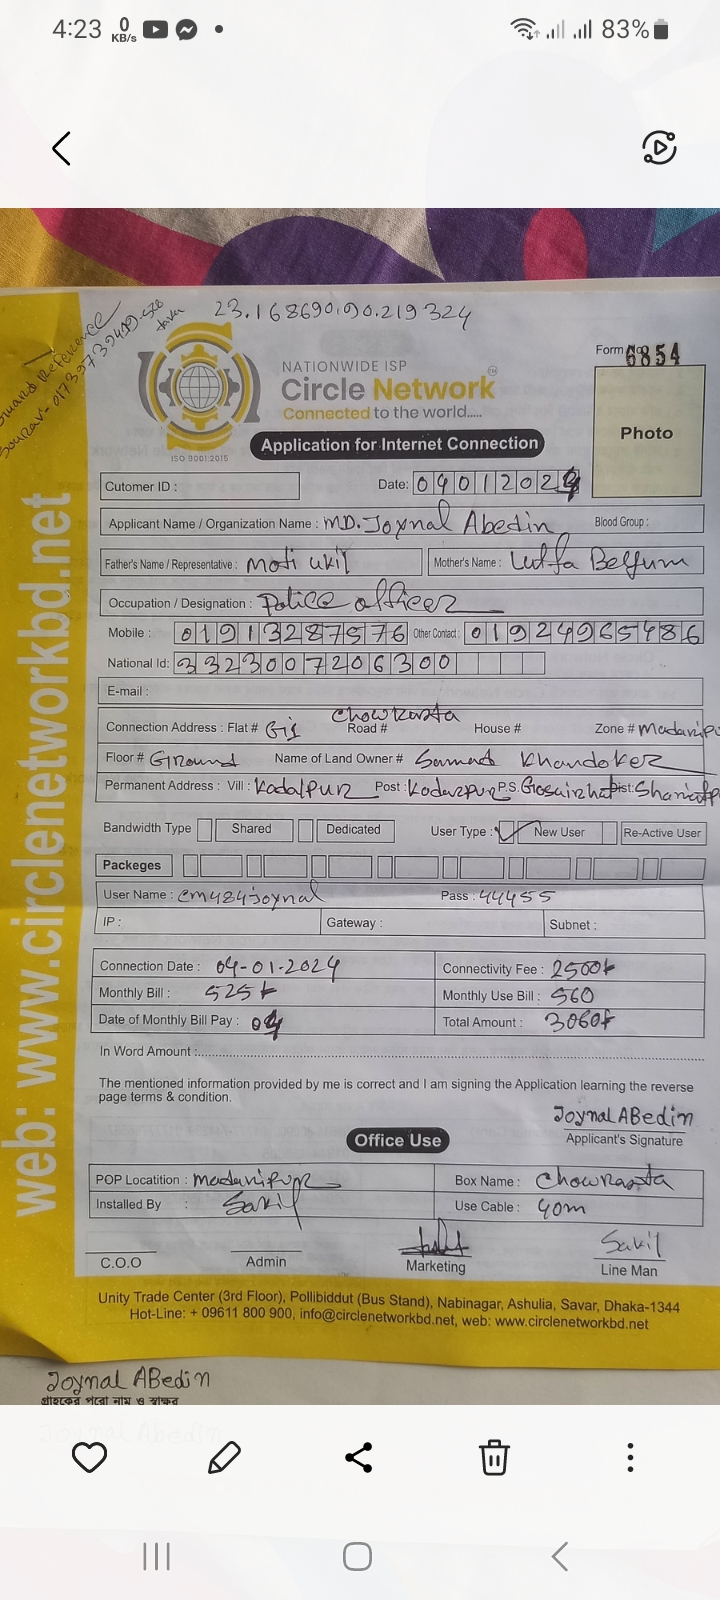 4:23 0 KB/s 83%
23.168690,90.219324
Reference
Form No 6854
NATIONWIDE ISP
Circle Network
Connected to the world.....
ISO 9001:2015
Application for Internet Connection
Photo
Cutomer ID :
Date: 04012024
Applicant Name / Organization Name : MD. Joynal Abedin Blood Group :
Father's Name / Representative : Moti Ukil Mother's Name : Lutfa Belyum
Occupation / Designation : Police officer
Mobile : 01913287576 Other Contact : 01924965486
National Id: 3323007206300
E-mail :
Connection Address : Flat # Road # Chowrasta House # Zone # Madanipu
Floor # Ground Name of Land Owner # Samad Khandoker
Permanent Address : Vill : Kodalpur Post : Kodarpur P.S. Gosairhat Dist:
Bandwidth Type Shared Dedicated User Type : New User Re-Active User
Packeges
User Name : cm424joynal Pass : 44455
IP : Gateway : Subnet :
Connection Date : 04-01-2024 Connectivity Fee : 2500
Monthly Bill : 525 Monthly Use Bill : 560
Date of Monthly Bill Pay : 04 Total Amount : 3060
In Word Amount :
The mentioned information provided by me is correct and I am signing the Application learning the reverse
page terms & condition.
Joynal ABedin
Applicant's Signature
Office Use
POP Locatition : Madanipur Box Name : Chowrasta
Installed By : Sakil Use Cable : 40m
Sakil
C.O.O Admin Marketing Line Man
Unity Trade Center (3rd Floor), Pollibiddut (Bus Stand), Nabinagar, Ashulia, Savar, Dhaka-1344
Hot-Line: + 09611 800 900, info@circlenetworkbd.net, web: www.circlenetworkbd.net
web: www.circlenetworkbd.net
Joynal ABedin
গ্রাহকের পুরো নাম ও স্বাক্ষর